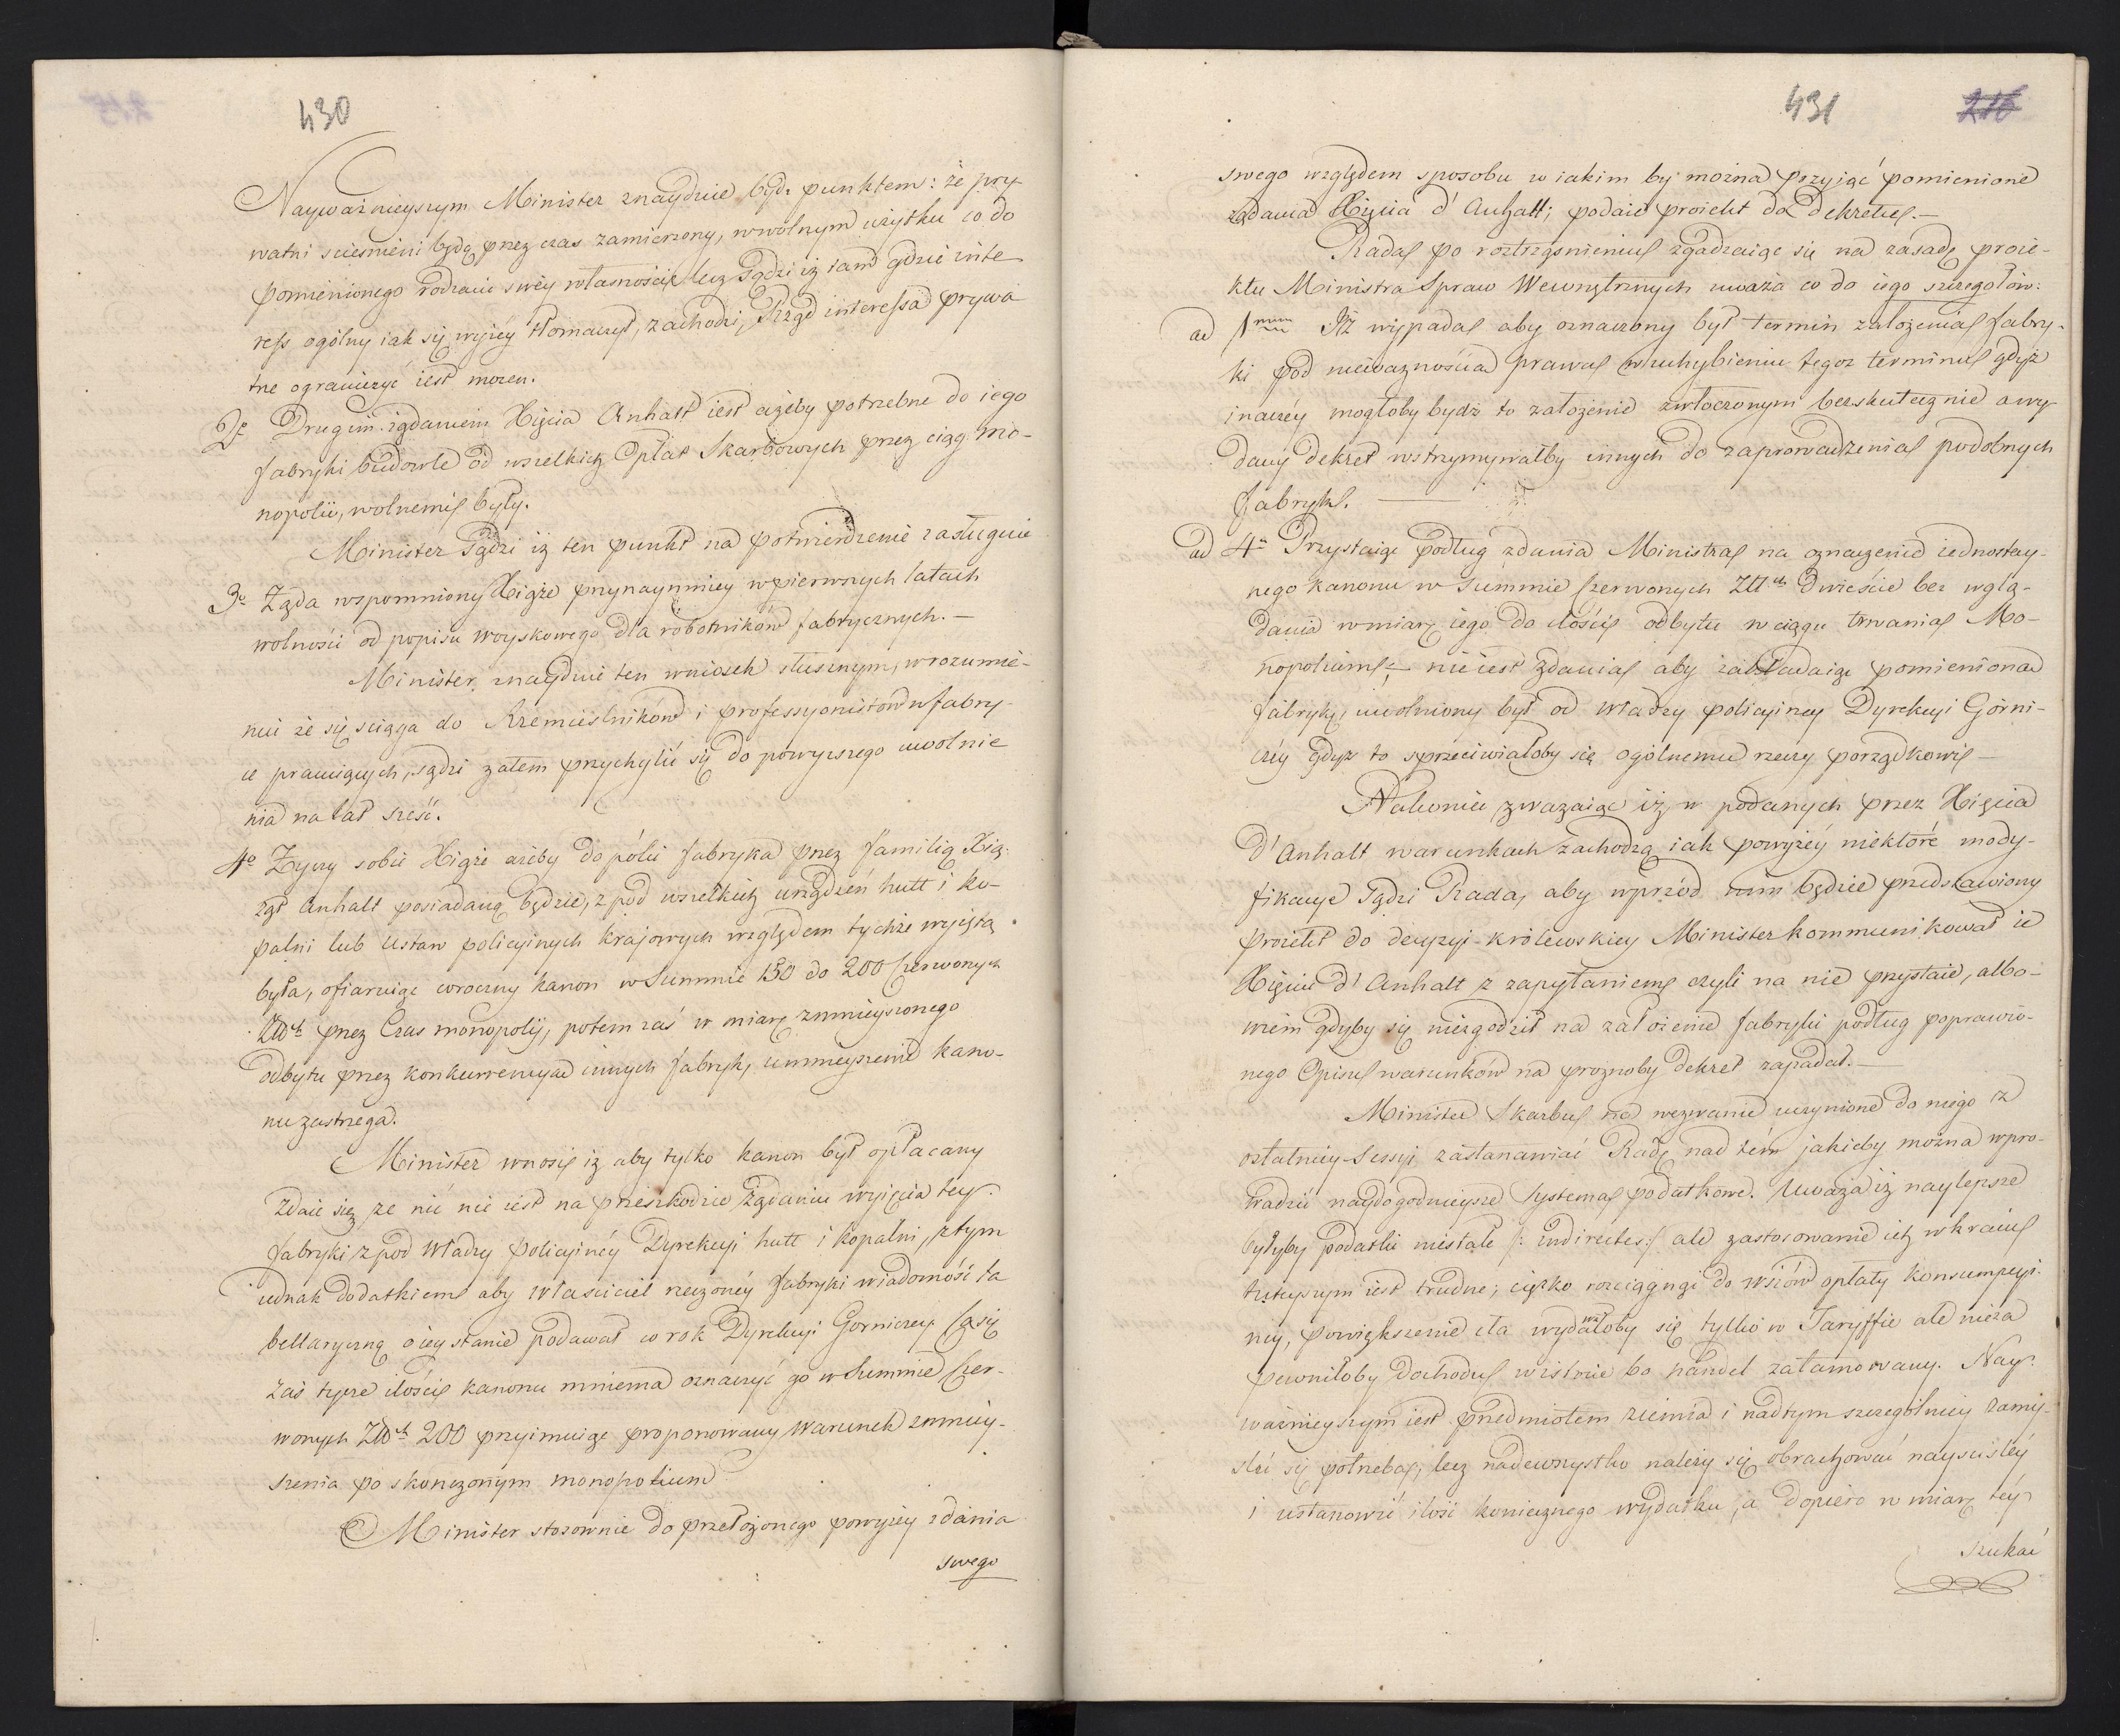 430
Nayważnieyszym Minister znayduie bydź punktem: że pry
watni scieśnieni będą przez czas zamierzony, wwolnym użytku co do
pomienionego rodzaiu swéy własności lecz sądzi iż tam gdzie inte
ress ogólny iak się wyżéy tłomaczył, zachodzi, Rząd interessa prywa
tne ograniczyć iest mocen.
2e Drugim żądaniem Xięcia Anhalt iest ażeby potrzebne do iego
fabryki budowle od wszelkich Opłat Skarbowych przez ciąg mo-
nopolii, wolnemi były.
Minister sądzi iż ten punkt na potwierdzenie zasługuie
3o Żąda wspomniony Xiąże przynaymniey wpierwszych latach
wolności od popisu woyskowego dla robotników fabrycznych. —
Minister znayduie ten wniosek słusznym, wrozumie-
niu że się sciąga do Rzemieślników i professyonistów w fabry-
ce pracuiących, sądzi zatem przychylić się do powyższego uwolnie
nia na lat sześć.
4o Życzy sobie Xiąże ażeby dopóki fabryka przez familią Xią-
żąt Anhalt posiadaną będzie, z pod wszelkich urządzeń hutt i ko-
palni lub ustaw policyinych kraiowych względem tychże wyiętą
była, ofiaruiąc coroczny kanon w Summie 150 do 200 Czerwonych
Złtch przez Czas monopolij, potem zaś w miarę zmnieyszonego
odbytu przez konkurrencyą innych fabryk, ummieyszenie kano-
nu zastrzega.
Minister wnosi iż aby tylko kanon był opłacany
zdaie się że nic nie iest na przeszkodzie żądaniu wyięcia tey
fabryki z pod Władzy policyinéy Dyrekcyi hutt i kopalni, z tym
iednak dodatkiem aby właściciel rzeczonéy fabryki wiadomość ta
bellaryczną o iey stanie podawał co rok Dyrekcyi Gorniczey Co się
zaś tycze ilości kanonu mniema oznaczyć go w Summie Czer-
wonych Złtch 200 przyimuiąc proponowany warunek zmniey-
szenia po skończonym monopolium
Minister stosownie do przełożonego powyżey zdania
swego
431 216
swego względem sposobu w iakim by można przyiąć pomienione
żądania Xięcia d'Anhalt; podaie proiekt do dekretu. —
Rada po roztrząśnieniu zgadzaiąc się na zasadę proie-
ktu Ministra Spraw Wewnętrznych uważa co do iego szczegołów:
ad 1mum Iż wypada aby oznaczony był termin założenia fabry-
ki pod nieważnością prawa w uchybieniu tegoz terminu gdyż
inaczéy mogłoby bydż to założenie zwłoczonym bezskutecznie a wy-
dany dekret wstrzymywałby innych do zaprowadzenia podobnych
fabryk. —
ad 4m Przystaiąc podług zdania Ministra na oznaczenie iednostay-
nego kanonu w Summie Czerwonych Złtch Dwieście bez wglą-
dania w miarę iego do ilości odbytu w ciągu trwania Mo-
nopolium; — nie iest zdania aby zakładaiąc pomienioną
fabrykę, uwolniony był od władzy policyiney Dyrekcyi Górni-
czéy gdyż to sprzeciwiałoby się ogólnemu rzeczy porządkowi —
Nakoniec zważaiąc iż w podanych przez Xięcia
d'Anhalt warunkach zachodzą iak powyżéy niektóre mody-
fikacye sądzi Rada, aby wprzód nim będzie przedstawiony
proiekt do decyzyi królewskiey Minister kommunikował ie
Xięciu d'Anhalt z zapytaniem czyli na nie przystaie, albo-
wiem gdyby się niezgodził na założenie fabryki podług poprawio-
nego Opisu warunków na proznoby dekret zapadał. —
Minister Skarbu na wezwanie uczynione do niego z
ostatniey Sessyi zastanawiać Radę nad tém jakieby można wpro-
wadzić naydogodnieysze Systema podatkowe. Uważa iż naylepsze
byłyby podatki niestałe /: indirectes :/ ale zastosowanie ich w kraiu
tuteyszym iest trudne; ciężko rosciągnąć do wsiów opłaty konsumpcyi-
ney, powiększenie cła wydawałoby się tylko w Taryffie ale nieza
pewniłoby dochodu wistocie bo handel zatamowany. Nay-
ważnieyszym iest przedmiotem ziemia i nad tym szczególniey zamy-
ślić się potrzeba; lecz nadewszystko należy się obrachować nayściśléy
i ustanowić ilość koniecznego wydatku, a dopiero w miarę téy
szukać